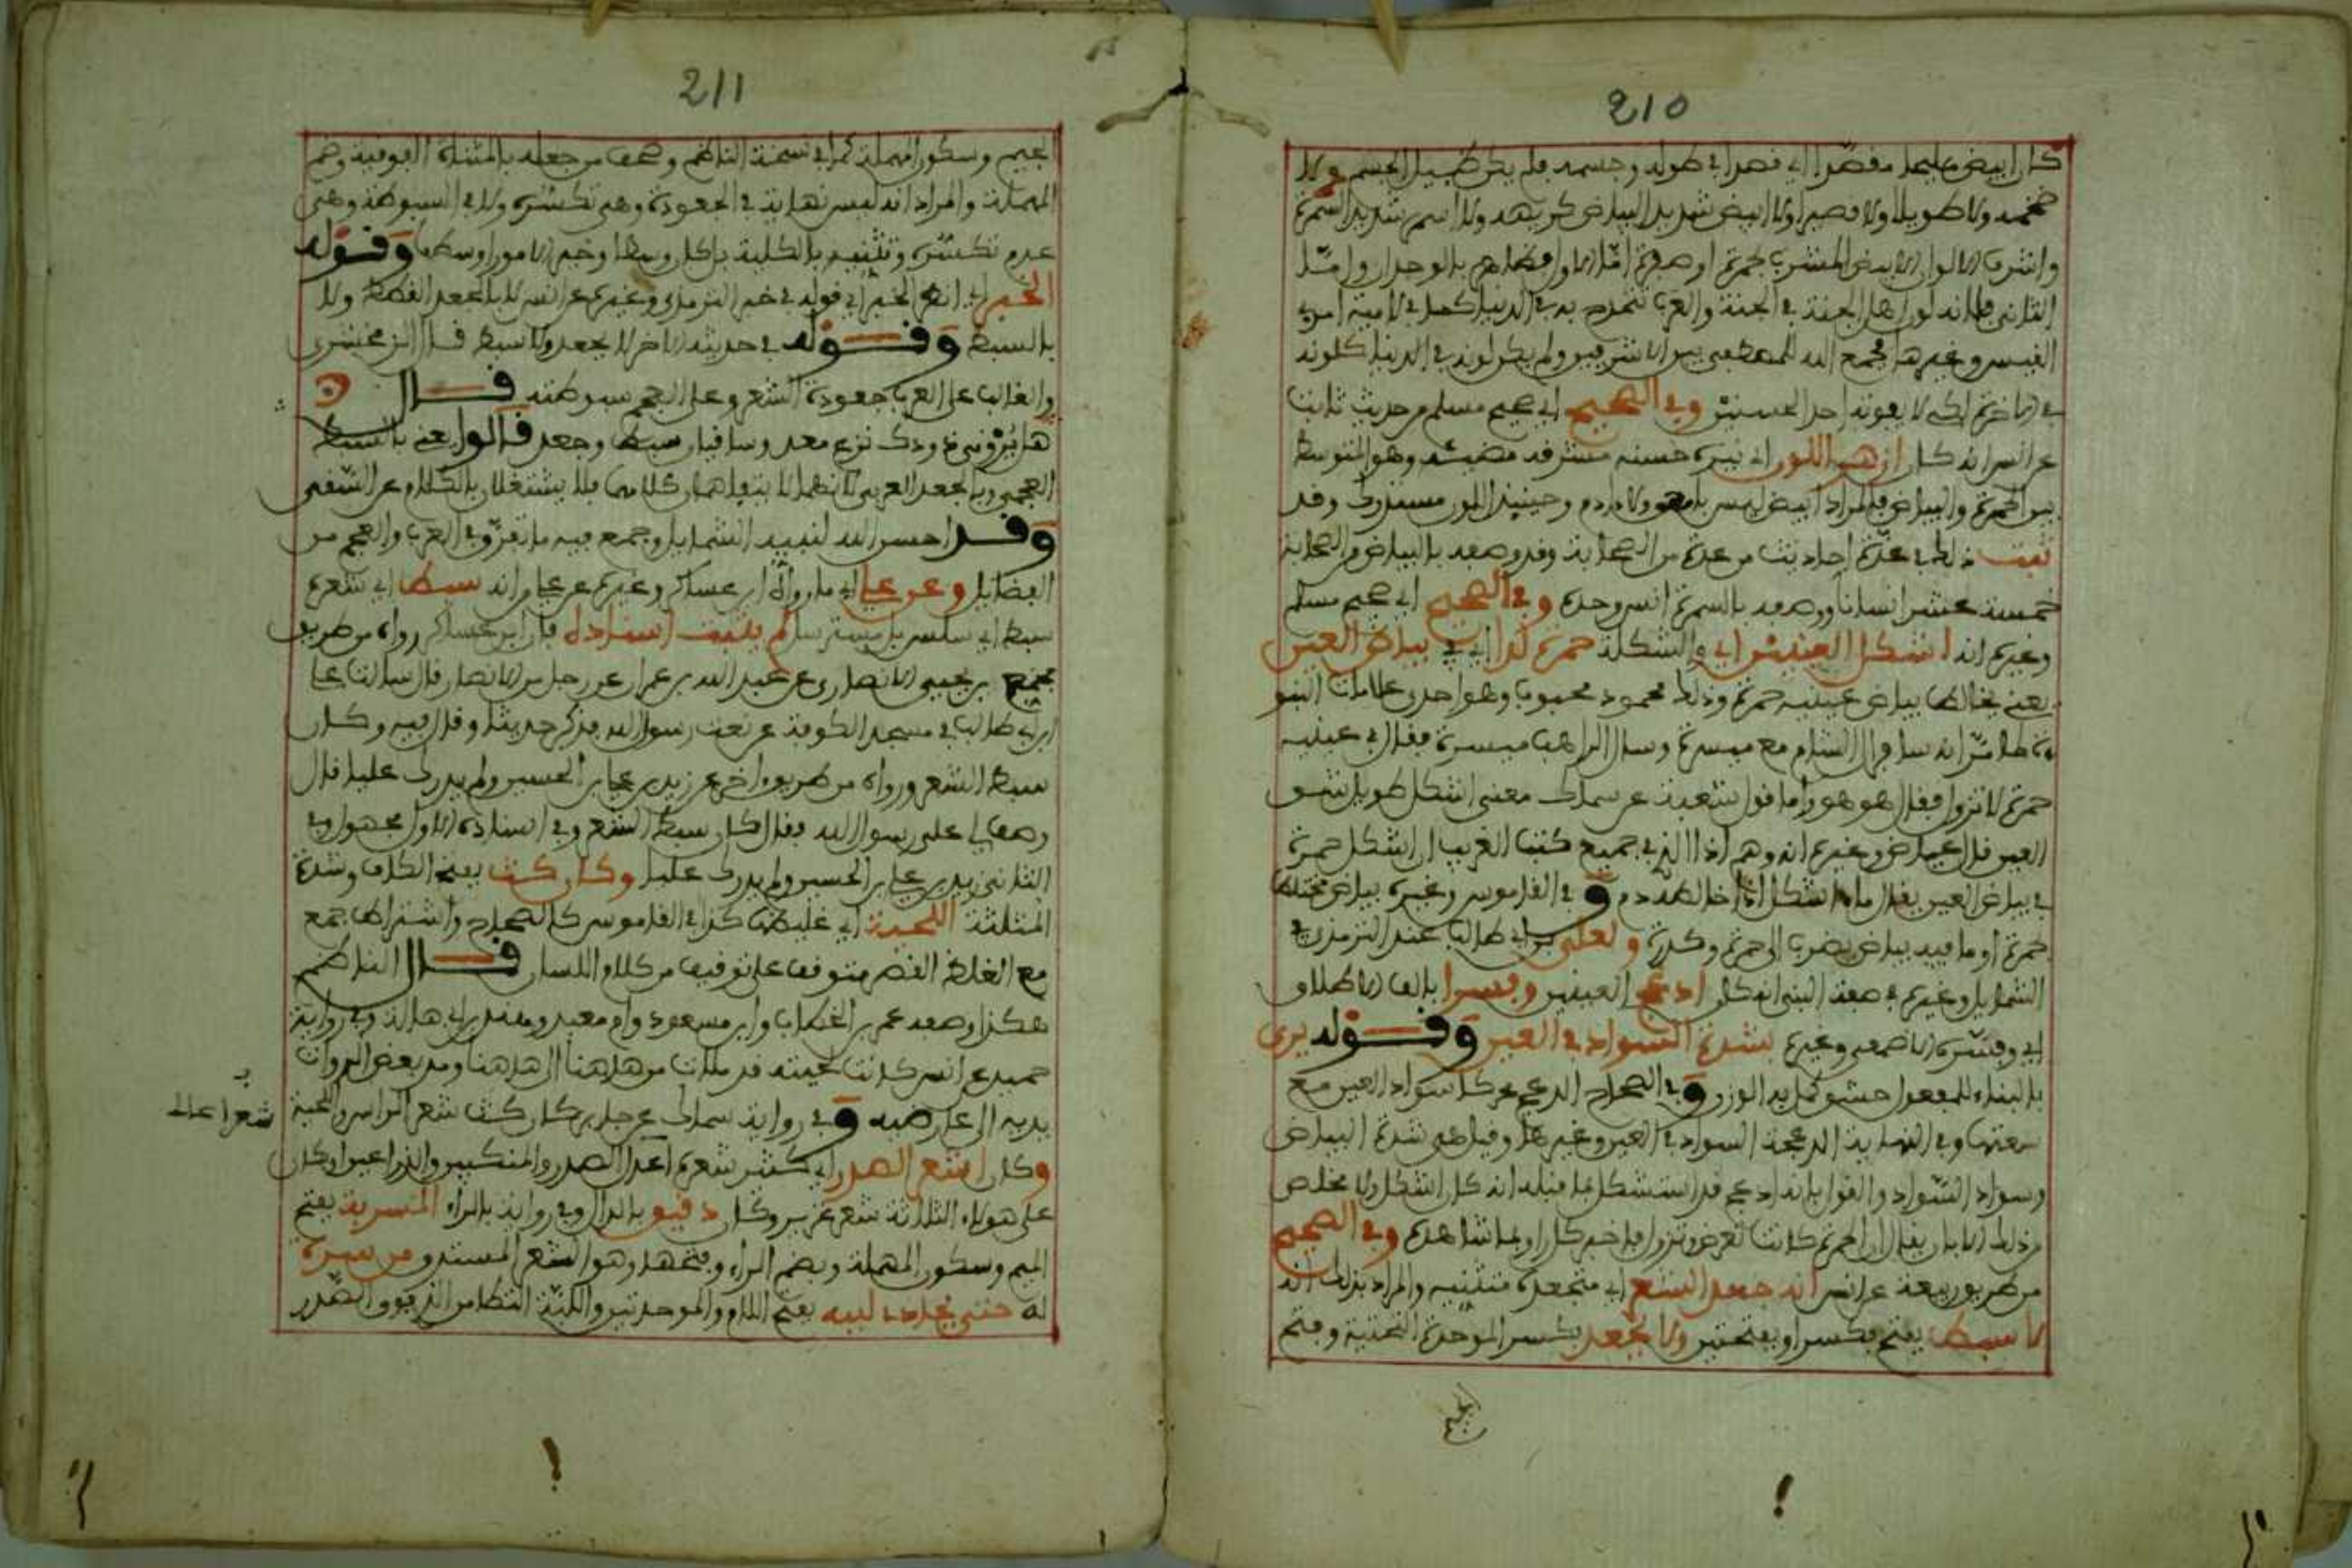 210
كان ابيض مليحا مقصدا اي قصدا في طوله وجسمه فلم يكن ضئيل الجسم ولا
ضخمه ولا طويلا ولا قصيرا ولا ابيض شديد البياض كريهه ولا اسمر شديد السمرة
واشرب الالوان الابيض المشرب بحمرة او صفرة اما الاول فظاهر بالوجدان واما
الثاني فلانه لون اهل الجنة في الجنة والعرب تتمدح به في الدنيا كما في لامية امرئ
القيس وغيرها فجمع الله للمصطفى بين الاشرفين ولم يكن لونه في الدنيا كلونه
في الاخرة لئلا يفوته احد الحسنين وفي الصحيح اي صحيح مسلم من حديث ثابت
عن انس انه كان ازهر اللون اي نيره حسنه مشرقه مضيئه وهو المتوسط
بين الحمرة والبياض فالمراد ابيض ليس بامهق ولا ادم وحينئذ اللون مستدرك وقد
ثبت ذلك في عدة احاديث من عدة من الصحابة وقد وصفه بالبياض من الصحابة
خمسة عشر انسانا ووصفه بالسمرة انس وحده وفي الصحيح اي صحيح مسلم
وغيره انه اشكل العينين اي والشكلة حمرة لدا اي في بياض العين
يعني يخالط بياض عينيه حمرة وذلك محمود محبوب وهو احدى علامات النبو
ة كما مر انه سافر الى الشام مع ميسرة وسال الراهب ميسرة فقال في عينيه
حمرة لا تزول فقال هو هو واما قول شعبة عن سماك معنى اشكل طويل شق
العين قال عياض وغيره انه وهم اذ الذي في جميع كتب الغريب ان اشكل حمرة
في بياض العين يقال ماء اشكل اذا خالطه دم و في القاموس وغيره بياض مختلط
حمرة او ما فيه بياض يضرب الى حمرة وكدرة ولعلي بن ابي طالب عند الترمذي في
الشمايل وغيره في صفة النبي انه كان ادعج العينين وفسرا بالف الاطلاق
اي وفسره الاصمعي وغيره بشدة السواد في العين وقوله يرى
بالبناء للمفعول حشو كمل به الوزن وفي الصحاح الدعج محركا سواد العين مع
سعتها وفي النهاية الدعجة السواد في العين وغيرها وقيل هي شدة البياض
وسواد السواد والقول بانه ادعج قد استشكل بما قبله انه كان اشكل ولا مخلص
من ذلك الا بان يقال ان الحمرة كانت تعرض وتزول فاخبر كل راو بما شاهده وفي الصحيح
من طريق ربيعة عن انس انه جعد الشعر اي متجعده متثنيه والمراد بذلك انه
لا سبط بفتح فكسر او بفتحتين ولا بجعد بكسر الموحدة التحتية وفتح
الجيم
211
الجيم وسكون المهملة كذا في نسخة الناظم وصحف من جعله بالمثناة الفوقية وضم
المهملة والمراد انه ليس نهاية في الجعودة وهي تكسره ولا في السبوطة وهي
عدم تكسره وتثنيه بالكلية بل كان وسطا وخير الامور اوسطها وقوله
الخبر اي انظر الخبر اي قوله في خبر الترمذي وغيره عن انس لا بالجعد القطط ولا
بالسبط وقوله في حديثه الاخر لا بجعد ولا سبط قال الزمخشري
والغالب على العرب جعودة الشعر وعلى العجم سبوطته قال
هل يروني ذودك نزع معد وساقيان سبط وجعد قالوا يعني بالسبط
العجمي وبالجعد العربي لانهما لا يتفاهمان كلامهما فلا يشتغلان بالكلام عن السقي
وقد احسن الله لنبيه الشمايل وجمع فيه ما تفرق في العرب والعجم من
الفضايل وعن علي اي ما رواه ابن عساكر وغيره عن علي من انه سبط اي شعره
سبط اي سلس بل مسترسل لم يثبت اسناده فان ابن عساكر رواه من طريق
مجمع بن يحيى الانصاري عن عبد الله بن عمران عن رجل من الانصار قال سالت عليا
ابن ابي طالب في مسجد الكوفة عن نعت رسول الله فذكر حديثا وقال فيه وكان
سبط الشعر ورواه من طريق اخر عن زيد بن علي بن الحسين ولم يدرك عليا قال
وصف لي علي رسول الله فقال كان سبط الشعر وفي اسناده الاول مجهول وفي
الثاني زيد بن علي بن الحسين ولم يدرك عليا وكان كث بفتح الكاف وشدة
المثلثة اللحية اي غليظها كذا في القاموس كالصحاح واشتراط جمع
مع الغلظ القصر متوقف على توقيف من كلام اللسان قال الناظم
هكذا وصفه عمر بن الخطاب وابن مسعود وام معبد وهند بن ابي هالة وفي رواية
حميد عن انس كانت لحيته قد ملات من هاهنا الى هاهنا ومد بعض الرواة
يديه الى عارضيه وفي رواية سماك عن جابر كان كث شعر الراس واللحية
شعر اعالـ
وكان اشعر الصدر اي كثير شعر اعدال الصدر والمنكبين والذراعين وكان
على هؤلاء الثلاثة شعر غزير وكان دقيق بالدال وفي رواية بالراء المسربة بفتح
الميم وسكون المهملة وبضم الراء وفتحها وهو الشعر المستدق من سرته
له حتى يحاذي لببه بفتح اللام والموحدتين واللبة التطامن الذي فوق الصدر